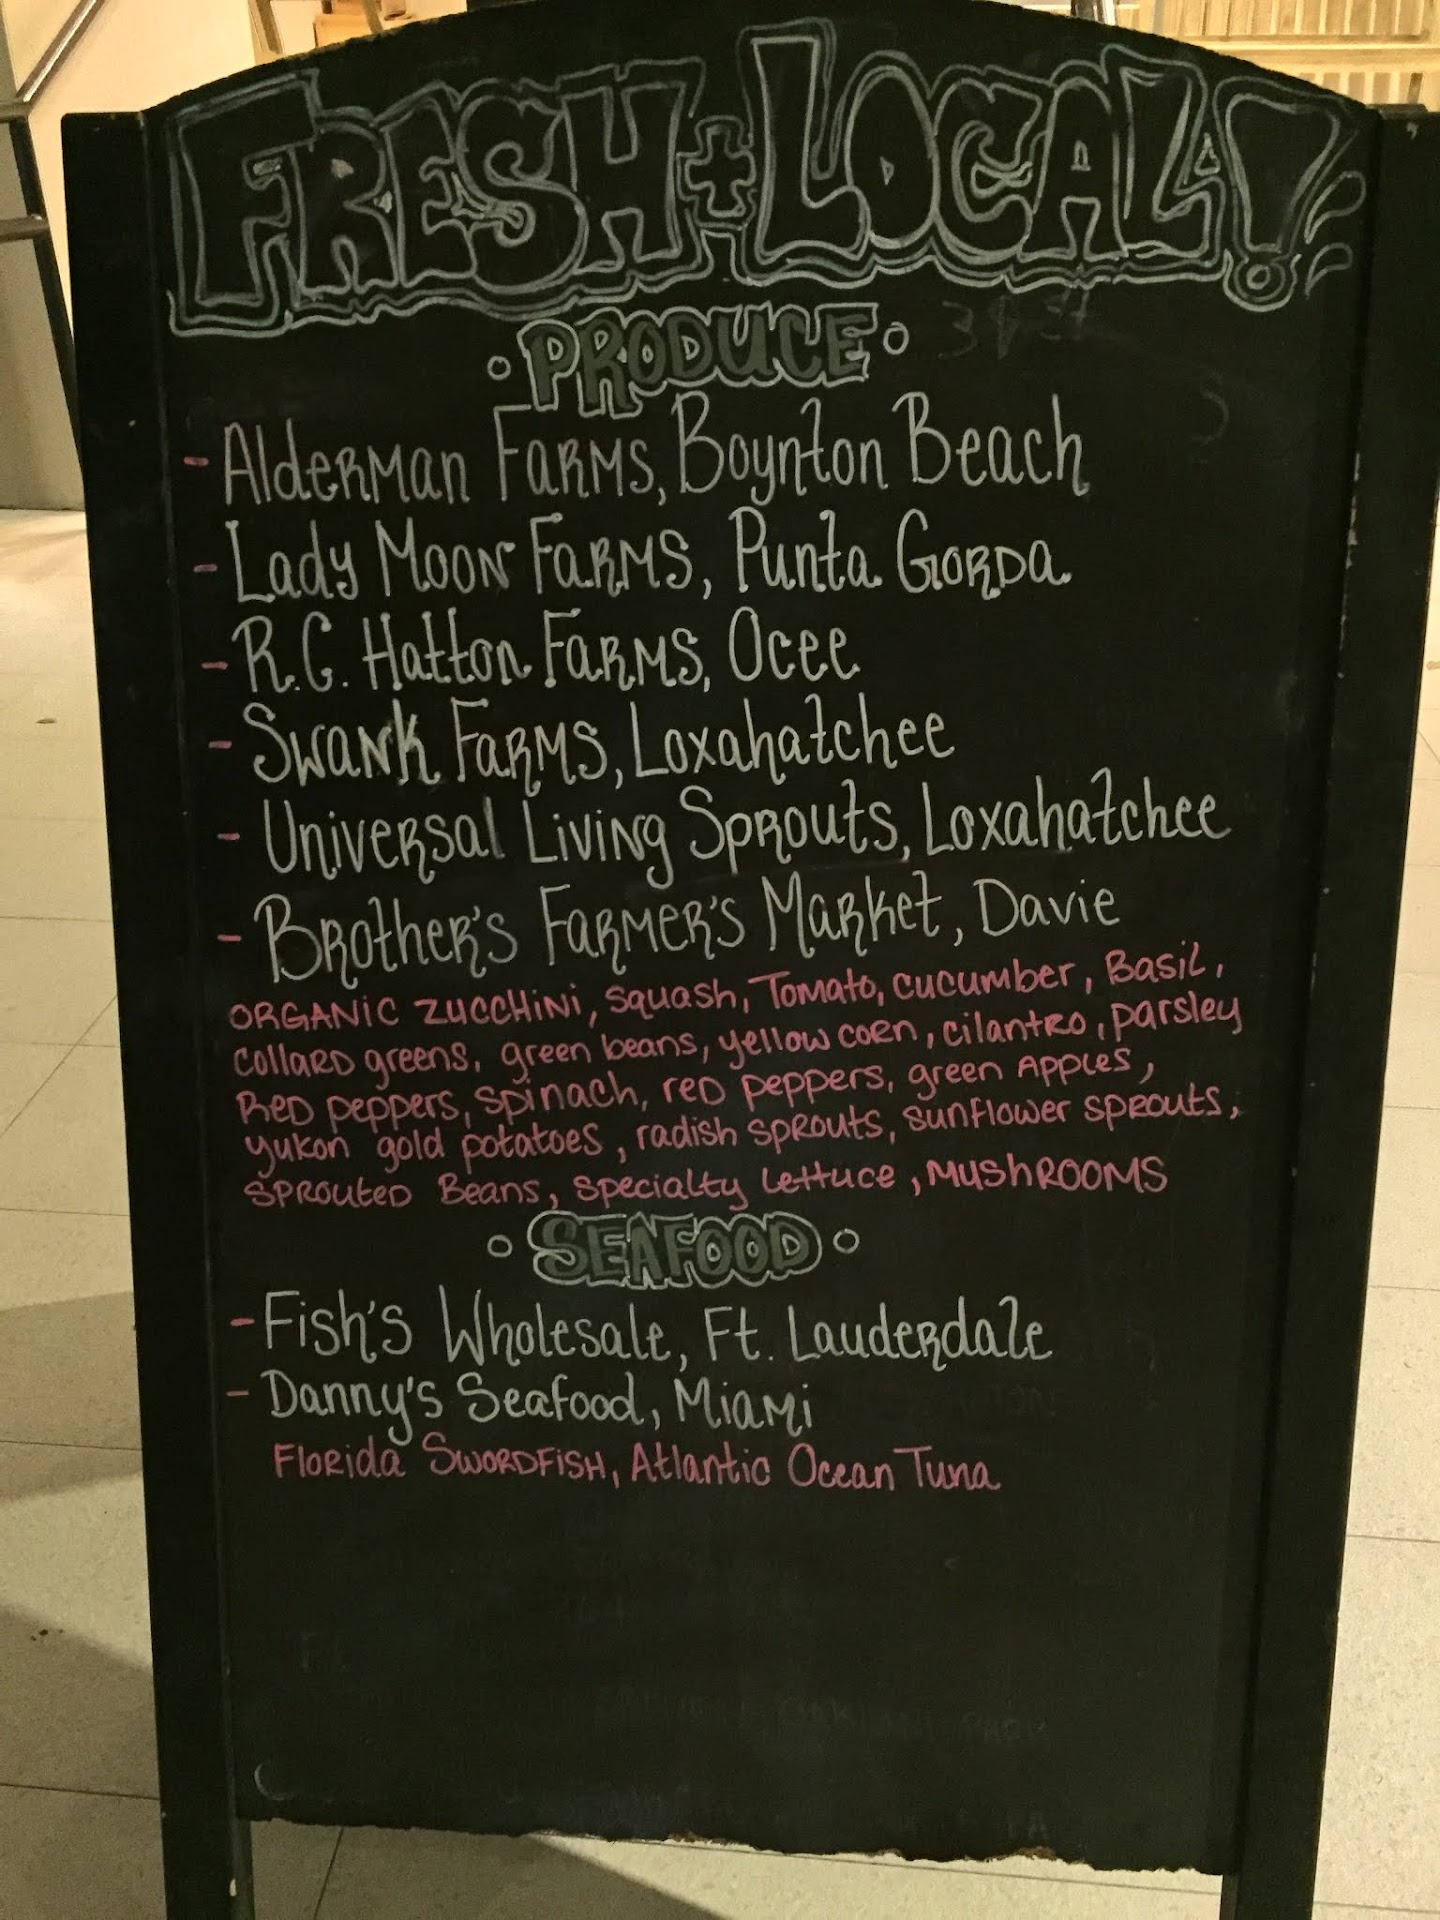 FRESH + LOCAL!
PRODUCE
- Alderman Farms, Boynton Beach
- Lady Moon Farms, Punta Gorda
- R.C. Hatton Farms, Ocee
- Swank Farms, Loxahatchee
- Universal Living Sprouts, Loxahatchee
- Brother's Farmer's Market, Davie
ORGANIC ZUCCHINI, Squash, Tomato, cucumber, Basil,
collard greens, green beans, yellow corn, cilantro, parsley
Red peppers, spinach, red peppers, green Apples,
yukon gold potatoes, radish sprouts, sunflower sprouts,
Sprouted Beans, specialty lettuce, MUSHROOMS
SEAFOOD
- Fish's Wholesale, Ft. Lauderdale
- Danny's Seafood, Miami
Florida Swordfish, Atlantic Ocean Tuna